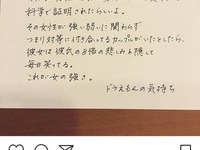 科学で証明されたらいよ。
その女性が強い弱いに関わらず
つまり対等に付き合ってるカップルがいたとしたら、
彼女は彼氏の8倍の悲しみを隠して
毎日笑ってる。
これが女の強さ。
ドラえもんの気持ち